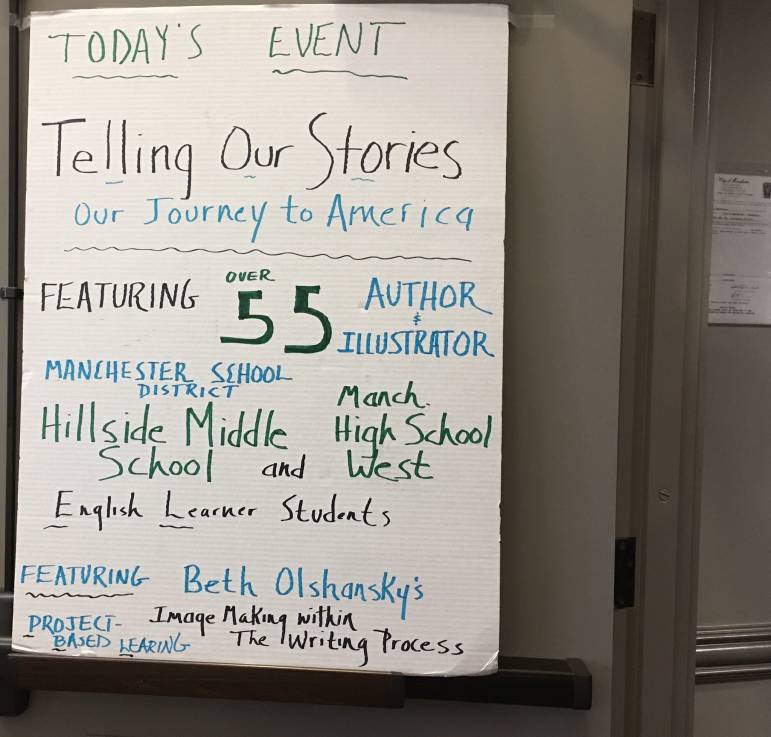 TODAY'S EVENT
Telling Our Stories
Our Journey to America
FEATURING OVER 55 AUTHOR & ILLUSTRATOR
MANCHESTER SCHOOL
DISTRICT
Hillside Middle School and Manch. High School West
English Learner Students
FEATURING Beth Olshansky's
PROJECT-BASED LEARING Image Making within
The Writing Process